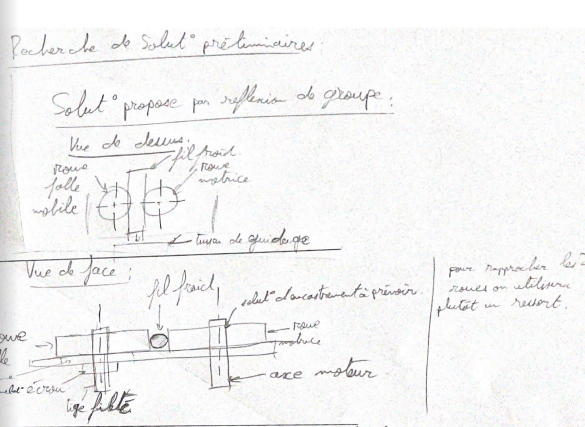 Recherche de Solut° préliminaires:
Solut° propose par reflexion de groupe:
Vue de dessus.
fil froid.
roue
folle
mobile
roue
motrice
tuyau de guidage
Vue de face:
fil froid
solut° d'encastrement à prévoir.
roue
motrice
axe moteur
écrou
tige filtée
pour rapprocher les 2
roues on utilisera
plutôt un ressort.